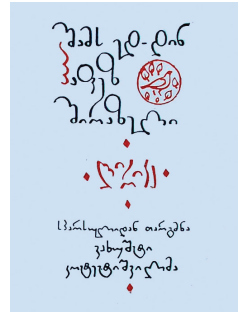 შამს ედ-დინ
ჰაფეზ
შირაზელი
ლირიკა
სპარსულიდან თარგმნა
ვახუშტი
კოტეტიშვილმა